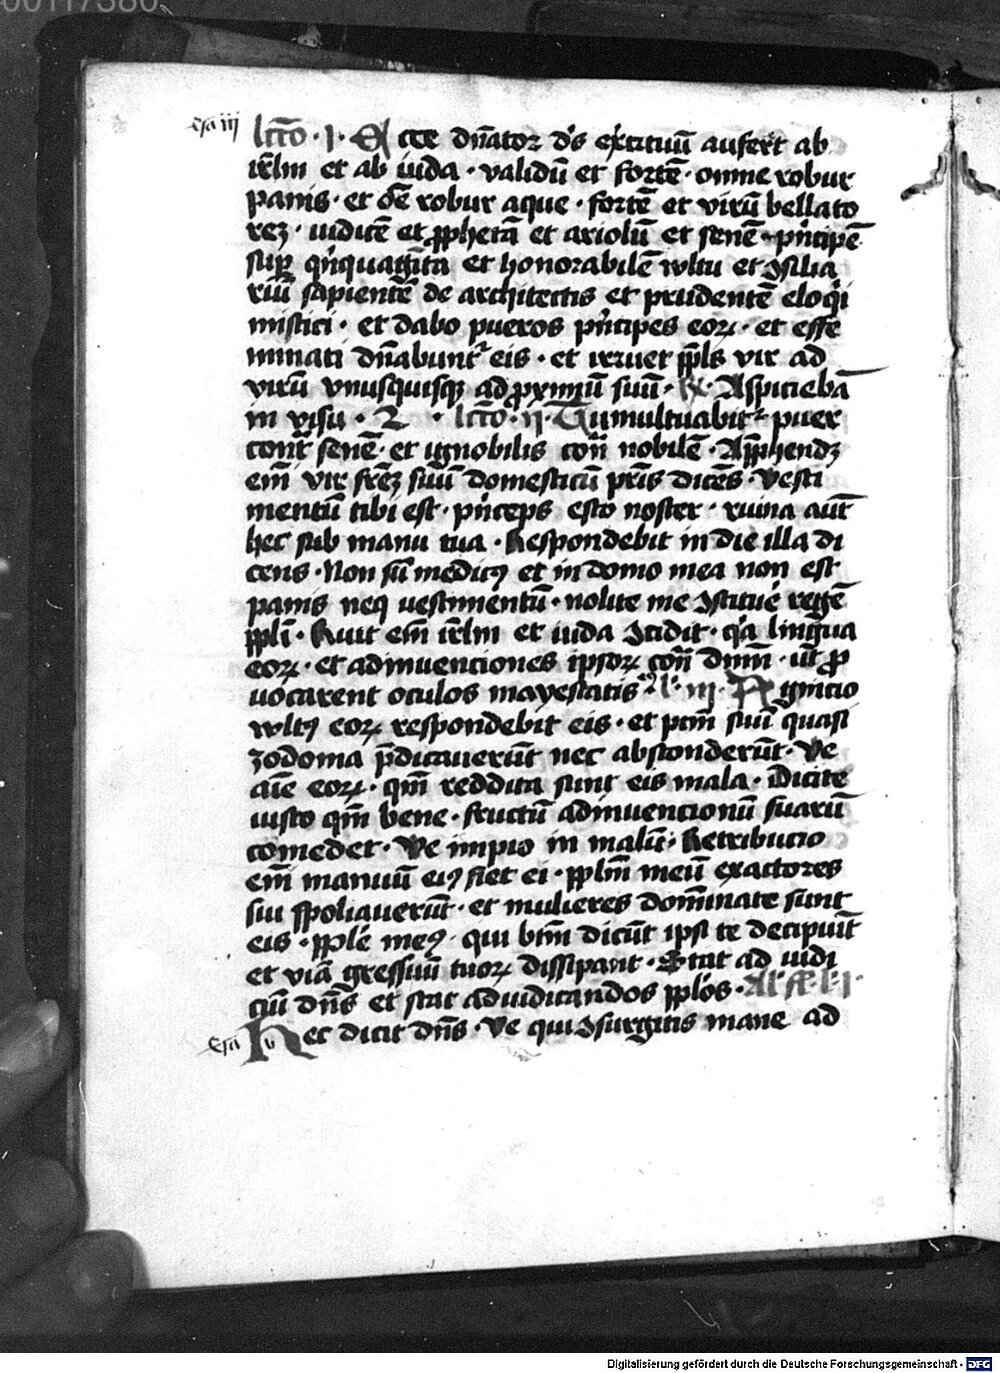 Esa iij
lcto · j · Ecce dn̄ator dn̄s ex̄cituū aufert ab
ir̄lm et ab iuda · validū et fortē · omne robur
panis · et om̄e robur aque · fortē et virū bellato
rez · iudicē et ꝓphetā et ariolū et senē · pͥncipē
suꝑ qͥnquagīta et honorabilē wltu et ꝯsilia
riū sapientē de architectis et prudentē eloqͥ
mistici · et dabo pueros pͥncipes eoꝝ · et effe
minati dn̄abunt᷑ eis · et irruet ppl̄s vir ad
virū vnusquisqꝫ ad ꝓximū suū · ℟ · Aspiciebā
in visu · Lcto · ij · Tumultuabit᷑ puer
contͣ senē · et ignobilis con̄ nobilē · Apphendꝫ
em̄ vir frēz suū domesticū pr̄is dicēs · Vesti
mentū tibi est · pͥnceps esto noster · ruina aut̄
hec sub manu tua · Respondebit in die illa di
cens · Non sū medicꝰ et in domo mea non est
panis neqꝫ uestimentū · nolite me ꝯstituē regē
ppl̄i · Ruit em̄ ir̄lm et iuda ꝯcidit · qͣ lingua
eoꝝ · et adinuenciones ipsoꝝ con̄ dnm̄ · ut ꝓ
uocarent oculos mayestatis · l · iij · Agnicio
wltꝰ eoꝝ respondebit eis · et pctm̄ suū quasi
zodoma p̄dicauerūt nec absconderūt · Ve
aīe eoꝝ · qm̄ reddita sunt eis mala · Dicite
iusto qm̄ bene · fructū adinuencionū suarū
comedet · Ve impio in malū · Retribucio
em̄ manuū eiꝰ fiet ei · pplm̄ meū exactores
sui spoliauerūt · et mulieres dominate sunt
eis · pple meꝰ · qui btm̄ dicūt ipsi te decipiūt
et viā gressuū tuoꝝ dissipant · Stat ad iudi
ciū dn̄s et stat ad iudicandos pplos · Al fe · l · j ·
Esa v Hec dicit dn̄s · Ve qui ꝯsurgitis mane ad
Digitalisierung gefördert durch die Deutsche Forschungsgemeinschaft · DFG